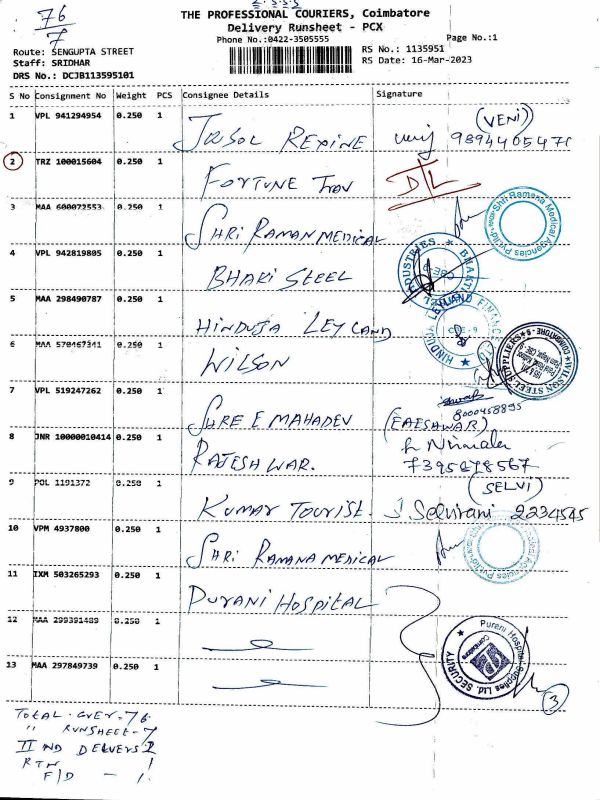 76
7
THE PROFESSIONAL COURIERS, Coimbatore
Delivery Runsheet - PCX
Phone No.:0422-3505555
Page No.:1
Route: SENGUPTA STREET
Staff: SRIDHAR
DRS No.: DCJB113595101
RS No.: 1135951
RS Date: 16-Mar-2023
S No Consignment No Weight PCS Consignee Details Signature
1 VPL 941294954 0.250 1 REXINE (VENI) 9894405471
2 TRZ 100015604 0.250 1 FORTUNE D/L
3 MAA 600072553 0.250 1 SHRI RAMAN MEDICAL
Shri Ramana Medical Agencies Pvt.Ltd
4 VPL 942819805 0.250 1 BHARI STEEL
INDUSTRIES
CBE-9
5 MAA 298490787 0.250 1 HINDUJA LEYLAND
HINDUJA LEYLAND FINANCE
6 MAA 570467341 0.250 1 WILSON
WILSON STEEL SUPPLIERS COIMBATORE - 9
7 VPL 519247262 0.250 1 SURE E MAHADEV (EAESHWAR)
8000458895
8 JNR 10000010414 0.250 1 RAJESHWAR. Nirmala
7395878567
9 POL 1191372 0.250 1 KUMAR TOURIST. (SELVI) J Selvirani 2234545
10 VPM 4937800 0.250 1 SHRI RAMANA MEDICAL
11 IXM 503265293 0.250 1 PURANI HOSPITAL
12 MAA 299391489 0.250 1
13 MAA 297849739 0.250 1
Purani Hospital Supplies Ltd. SECURITY
Coimbatore
3
TOTAL - 76
" RUNSHEET - 7
II ND DELIVERS
RTN 1
F/D - 1